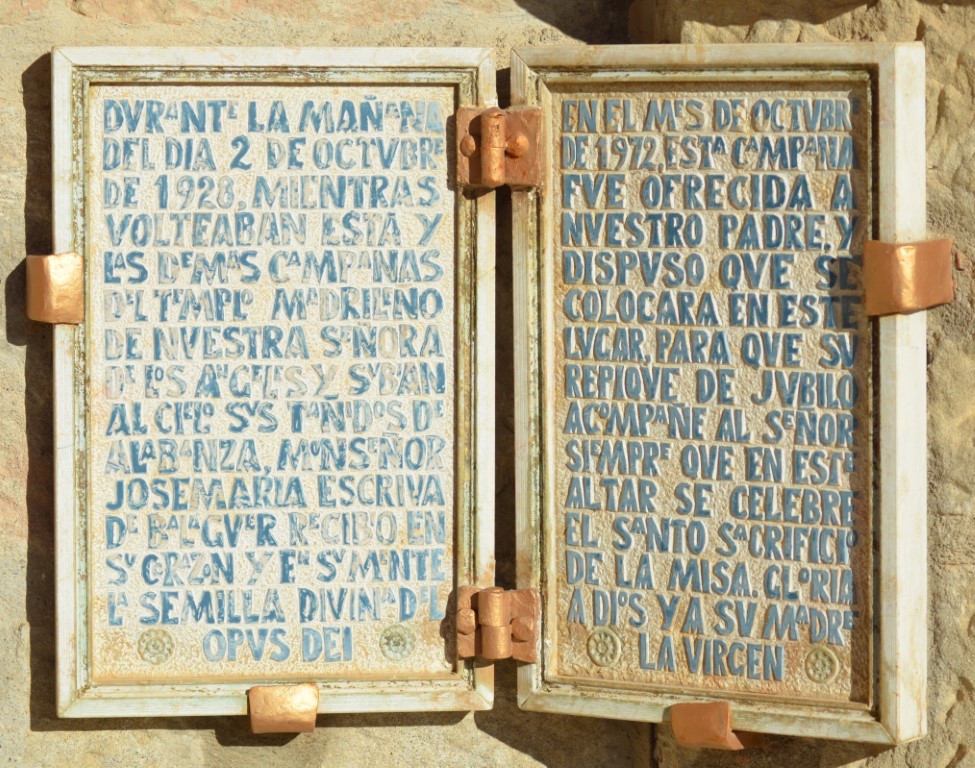 DVRANTE LA MAÑANA
DEL DIA 2 DE OCTVBRE
DE 1928, MIENTRAS
VOLTEABAN ESTA Y
LAS DEMAS CAMPANAS
DEL TEMPLO MADRILENO
DE NVESTRA SEÑORA
DE LOS ANGELES Y SVBIAN
AL CIELO SVS TAÑIDOS DE
ALABANZA, MONSEÑOR
JOSEMARIA ESCRIVA
DE BALAGVER RECIBO EN
SV CORAZON Y EN SV MENTE
LA SEMILLA DIVINA DEL
OPVS DEI
EN EL MES DE OCTVBRE
DE 1972, ESTA CAMPANA
FVE OFRECIDA A
NVESTRO PADRE, Y
DISPVSO QVE SE
COLOCARA EN ESTE
LVGAR, PARA QVE SV
REPIQVE DE JVBILO
ACOMPAÑE AL SEÑOR
SIEMPRE QVE EN ESTE
ALTAR SE CELEBRE
EL SANTO SACRIFICIO
DE LA MISA. GLORIA
A DIOS Y A SV MADRE
LA VIRGEN